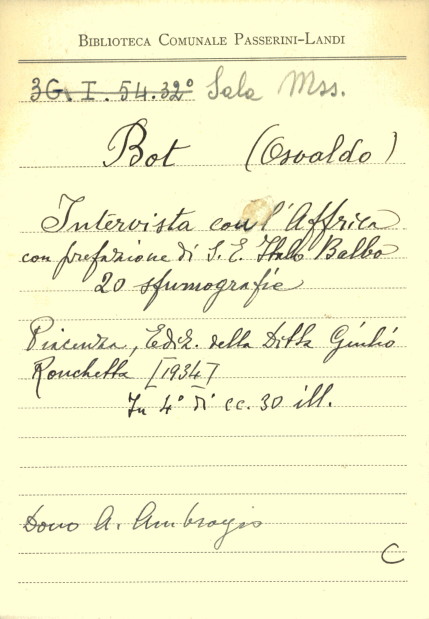 BIBLIOTECA COMUNALE PASSERINI-LANDI
3G. I. 54.32° Sala Mss.
Bot (Osvaldo)
Intervista con l'Affrica
con prefazione di S. E. Italo Balbo
20 sfumografie
Piacenza, Ediz. della Ditta Giulio
Ronchetta [1934]
In 4° di cc. 30 ill.
Dono A. Ambrogio
C